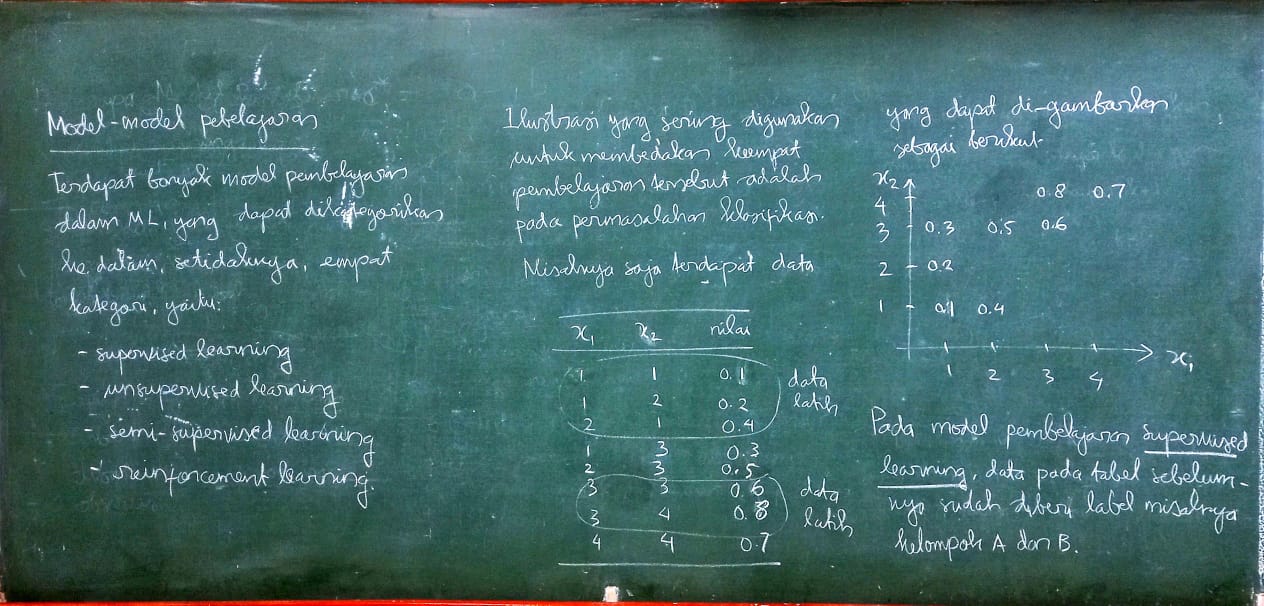 Model-model pebelajaran
Terdapat banyak model pembelajaran
dalam ML, yang dapat dikategorikan
ke dalam, setidaknya, empat
kategori, yaitu:
- supervised learning
- unsupervised learning
- semi-supervised learning
- reinforcement learning.
Ilustrasi yang sering digunakan
untuk membedakan keempat
pembelajaran tersebut adalah
pada permasalahan klasifikasi.
Misalnya saja terdapat data
x₁ x₂ nilai
1 1 0.1
1 2 0.2
2 1 0.4
data
latih
1 3 0.3
2 3 0.5
3 3 0.6
3 4 0.8
data
latih
4 4 0.7
yang dapat di-gambarkan
sebagai berikut
x₂
4 0.8 0.7
3 0.3 0.5 0.6
2 0.2
1 0.1 0.4
1 2 3 4 x₁
Pada model pembelajaran supervised
learning, data pada tabel sebelum-
nya sudah diberi label misalnya
kelompok A dan B.